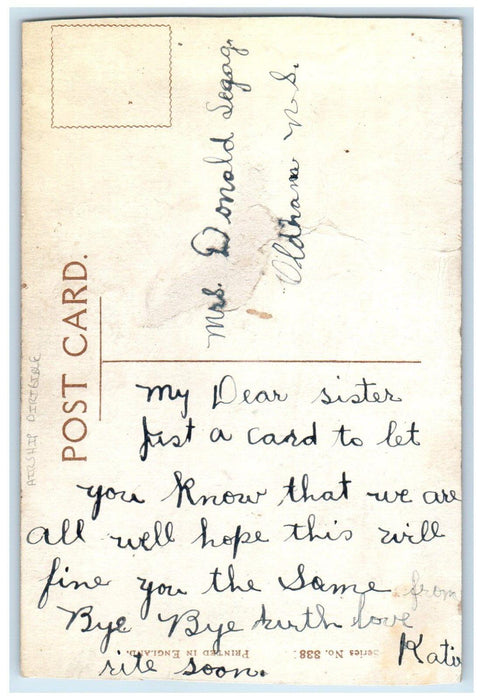 POST CARD.
AIRSHIP DIRIGIBLE
Mrs. Donald Legag.
Oldham N.S.
My Dear sister
Just a card to let
you Know that we are
all well hope this will
fine you the Same from
Bye Bye with love
Katie
rite soon.
Series No. 838.
PRINTED IN ENGLAND.